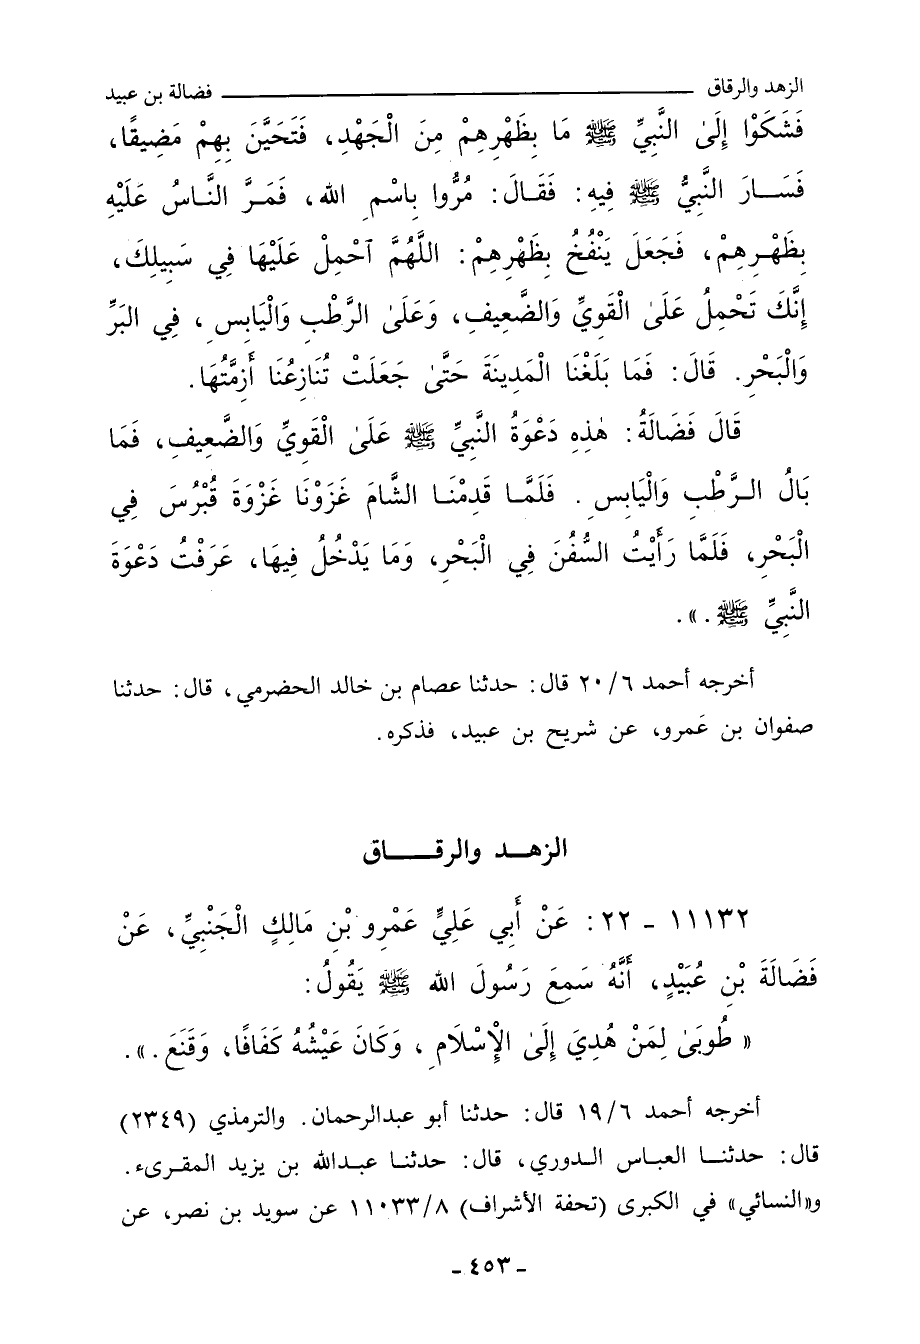 الزهد والرقاق ــــــــــــــــــــــــــــــــــــــــ فضالة بن عبيد
فَشَكَوْا إِلَىٰ النَّبِيِّ ﷺ مَا بِظَهْرِهِمْ مِنَ الْجَهْدِ، فَتَحَيَّنَ بِهِمْ مَضِيقًا،
فَسَارَ النَّبِيُّ ﷺ فِيهِ: فَقَالَ: مُرُّوا بِاسْمِ الله، فَمَرَّ النَّاسُ عَلَيْهِ
بِظَهْرِهِمْ، فَجَعَلَ يَنْفُخُ بِظَهْرِهِمْ: اللَّهُمَّ آحْمِلْ عَلَيْهَا فِي سَبِيلِكَ،
إِنَّكَ تَحْمِلُ عَلَىٰ الْقَوِيِّ وَالضَّعِيفِ، وَعَلَىٰ الرَّطْبِ وَالْيَابِسِ، فِي البَرِّ
وَالْبَحْرِ. قَالَ: فَمَا بَلَغْنَا الْمَدِينَةَ حَتَّىٰ جَعَلَتْ تُنَازِعُنَا أَزِمَّتُهَا.
قَالَ فَضَالَةُ: هٰذِهِ دَعْوَةُ النَّبِيِّ ﷺ عَلَىٰ الْقَوِيِّ وَالضَّعِيفِ، فَمَا
بَالُ الرَّطْبِ وَالْيَابِسِ. فَلَمَّا قَدِمْنَا الشَّامَ غَزَوْنَا غَزْوَةَ قُبْرُسَ فِي
الْبَحْرِ، فَلَمَّا رَأَيْتُ السُّفُنَ فِي الْبَحْرِ، وَمَا يَدْخُلُ فِيهَا، عَرَفْتُ دَعْوَةَ
النَّبِيِّ ﷺ.».
أخرجه أحمد ٢٠/٦ قال: حدثنا عصام بن خالد الحضرمي، قال: حدثنا
صفوان بن عَمرو، عن شريح بن عبيد، فذكره.
الزهد والرقاق
١١١٣٢ - ٢٢: عَنْ أَبِي عَلِيٍّ عَمْرِو بْنِ مَالِكٍ الْجَنْبِيِّ، عَنْ
فَضَالَةَ بْنِ عُبَيْدٍ، أَنَّهُ سَمِعَ رَسُولَ الله ﷺ يَقُولُ:
« طُوبَىٰ لِمَنْ هُدِيَ إِلَىٰ الْإِسْلَامِ، وَكَانَ عَيْشُهُ كَفَافًا، وَقَنَعَ.».
أخرجه أحمد ١٩/٦ قال: حدثنا أبو عبدالرحمان. والترمذي (٢٣٤٩)
قال: حدثنا العباس الدوري، قال: حدثنا عبدالله بن يزيد المقرىء.
و«النسائي» في الكبرى (تحفة الأشراف) ١١٠٣٣/٨ عن سويد بن نصر، عن
- ٤٥٣ -